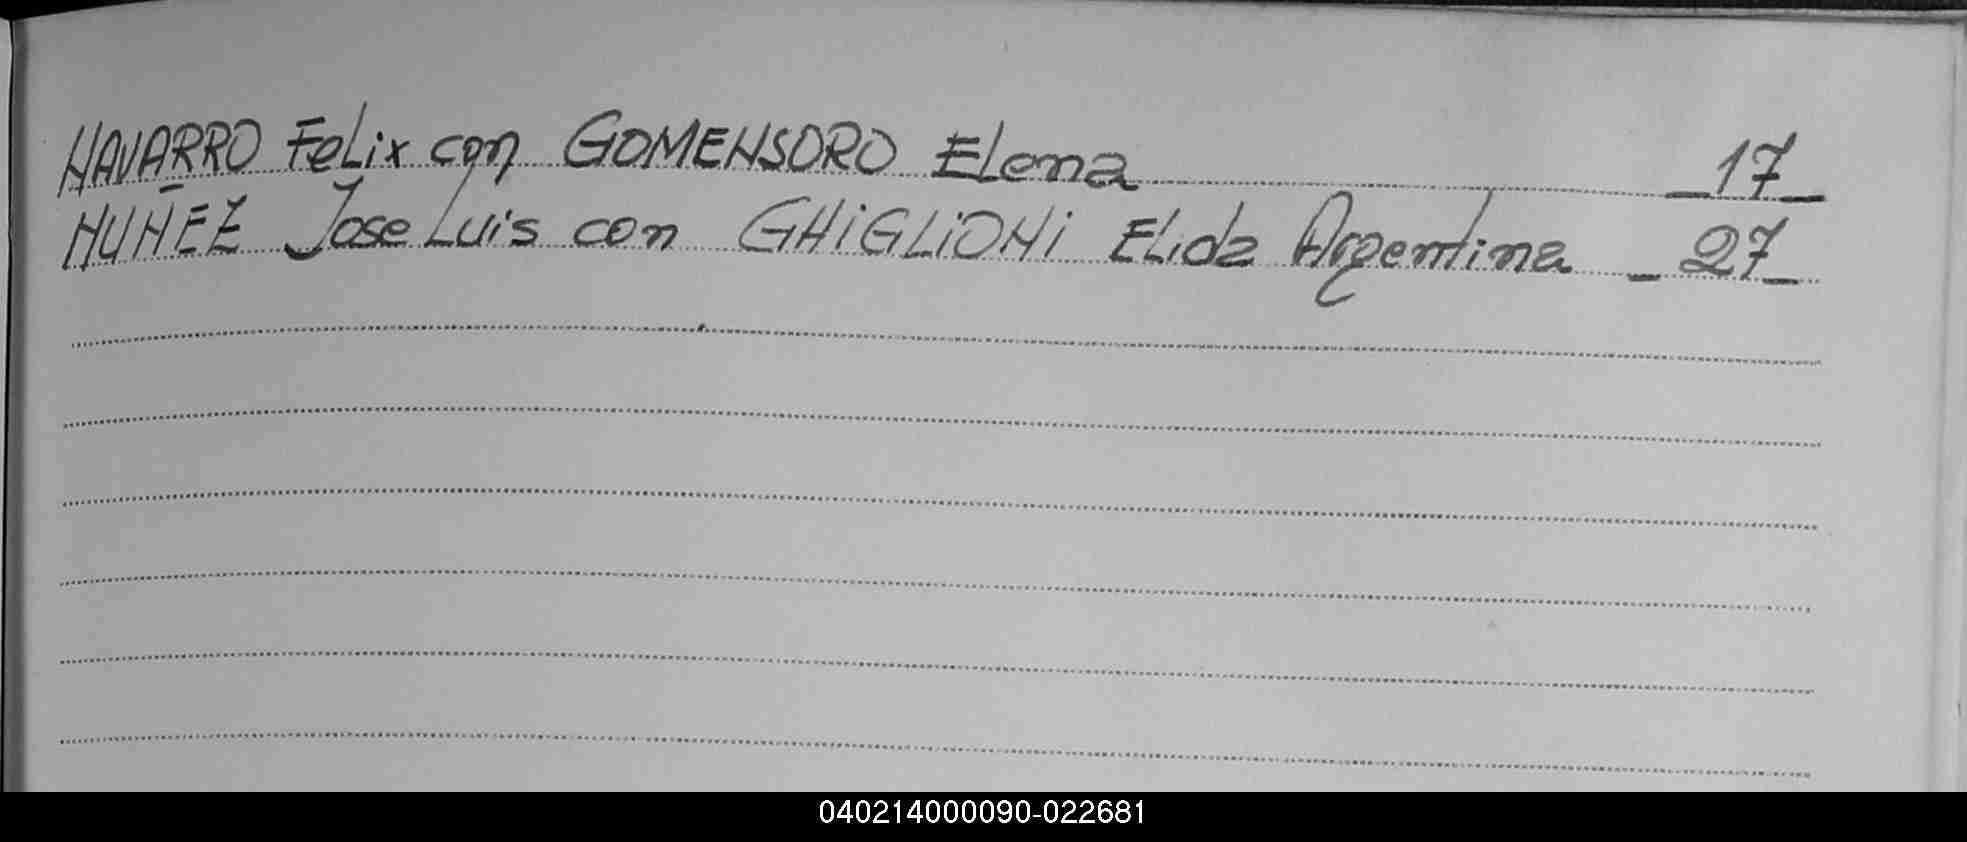 NAVARRO Felix con GOMENSORO Elena _17_
NUÑEZ Jose Luis con GHiGLiONi ELida Argentina _ 27_
040214000090-022681